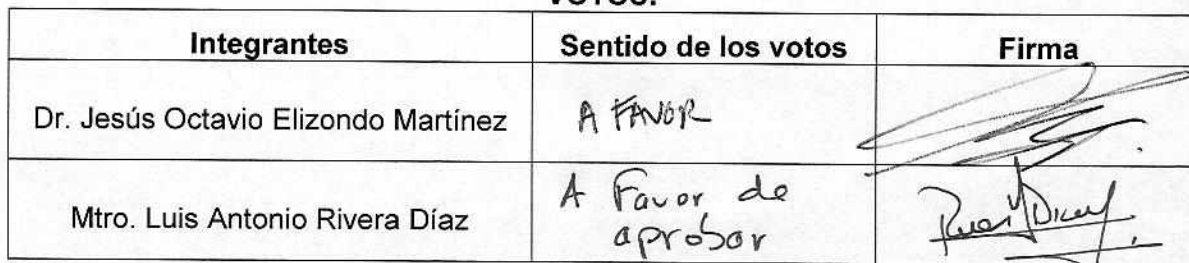 VOTOS:
Integrantes Sentido de los votos Firma
Dr. Jesús Octavio Elizondo Martínez A FAVOR
Mtro. Luis Antonio Rivera Díaz A Favor de
aprobar